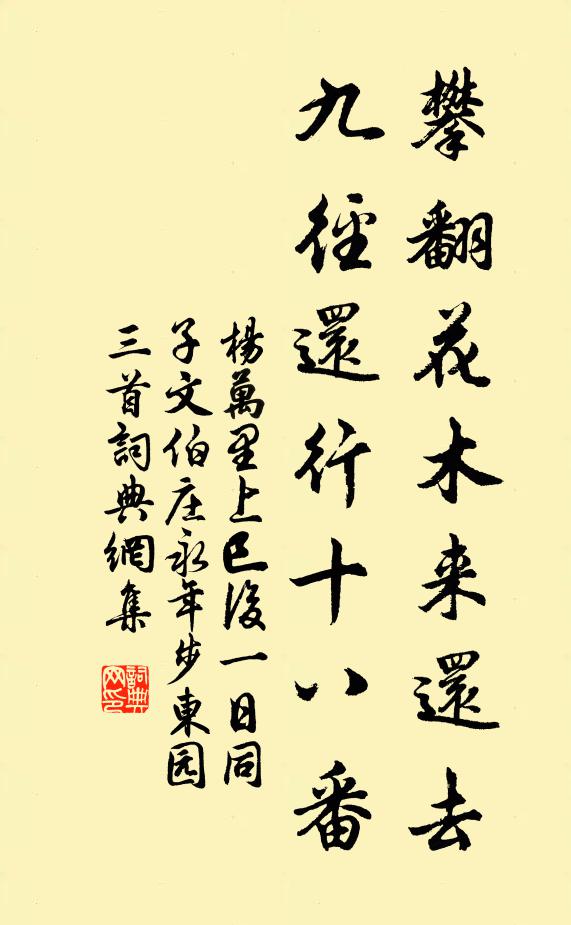 攀翻花木来還去
九徑還行十八番
楊萬里上巳後一日同
子文伯庄永年步東园
三首詞典網集
詞典网印